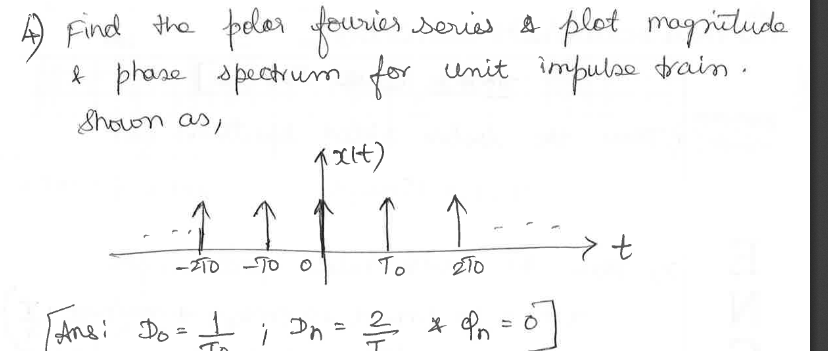 4) Find the polar fourier series & plot magnitude
& phase spectrum for unit impulse train.
Shown as,
x(t)
-2T0 -T0 0 T0 2T0 t
[Ans: D0 = 1/T0 ; Dn = 2/T & φn = 0]